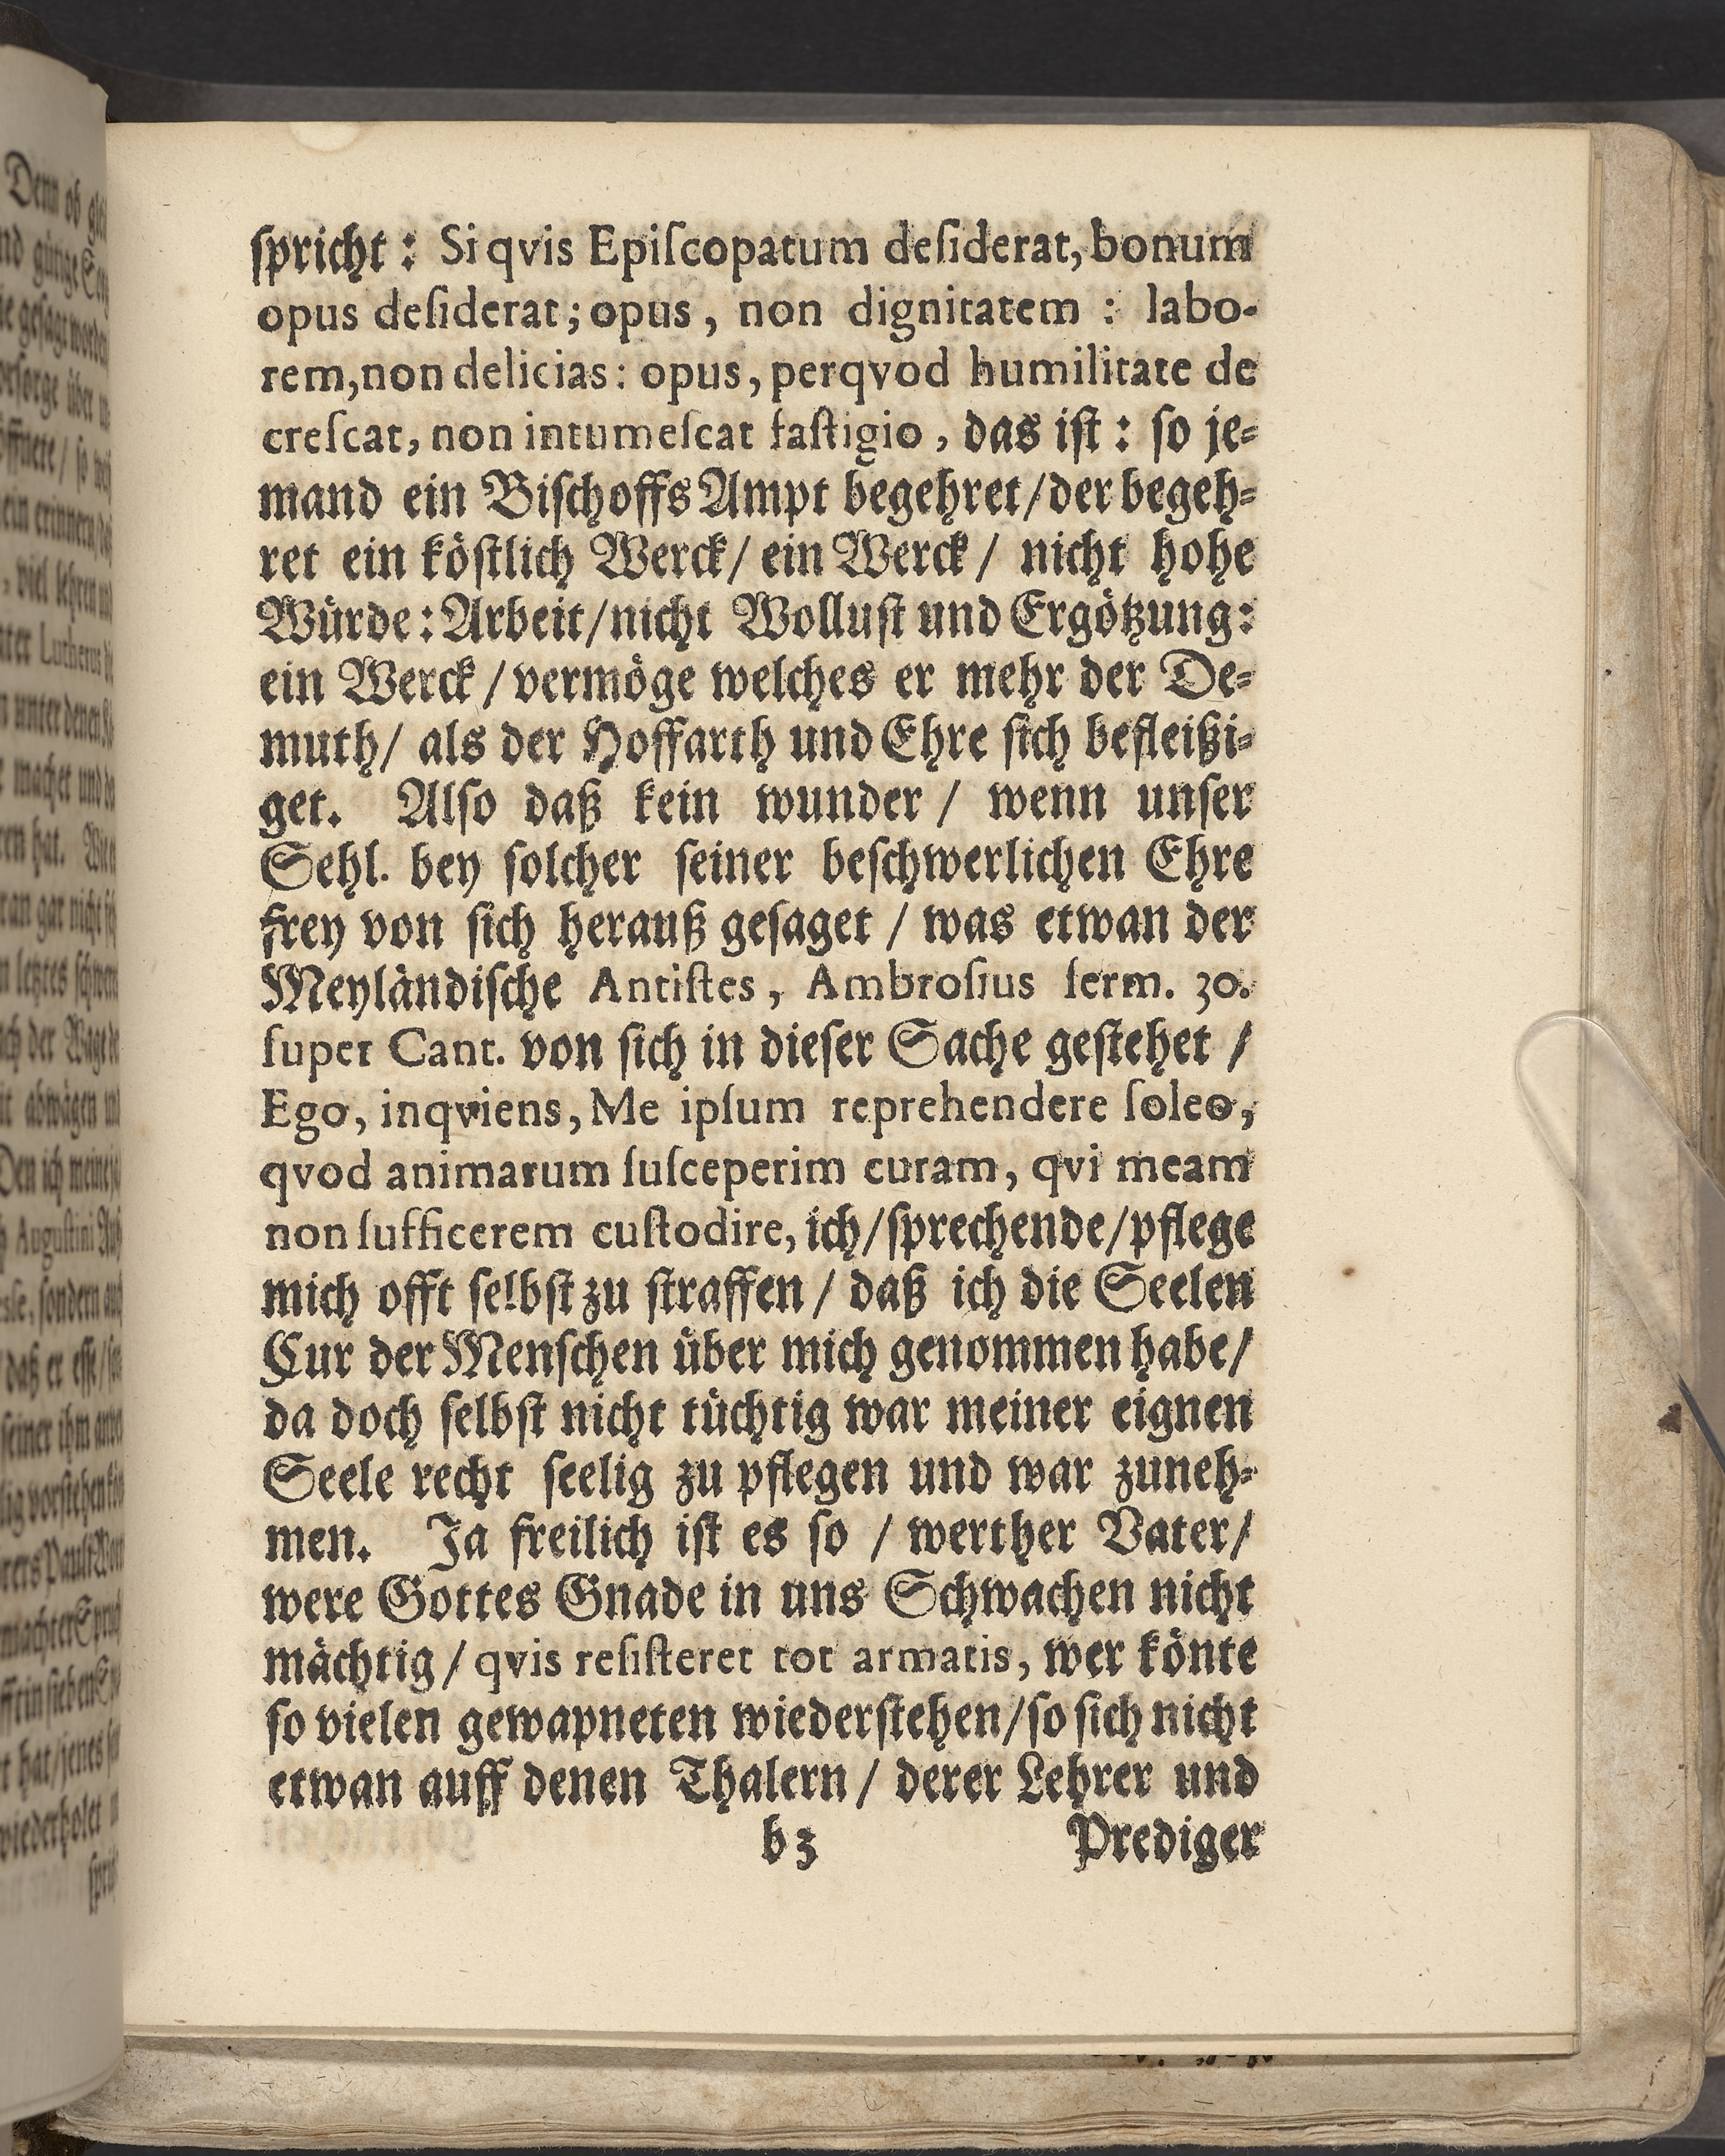 ſpricht: Si qvis Epiſcopatum deſiderat, bonum
opus deſiderat; opus, non dignitatem: labo-
rem, non delicias: opus, perqvod humilitate de
creſcat, non intumeſcat faſtigio, das iſt: ſo je-
mand ein Biſchoffs Ampt begehret/ der begeh-
ret ein köſtlich Werck/ ein Werck/ nicht hohe
Würde: Arbeit/ nicht Wolluſt und Ergötzung:
ein Werck/ vermöge welches er mehr der De-
muth/ als der Hoffarth und Ehre ſich befleißi-
get. Alſo daß kein wunder/ wenn unſer
Sehl. bey ſolcher ſeiner beſchwerlichen Ehre
frey von ſich herauß geſaget/ was etwan der
Meyländiſche Antiſtes, Ambroſius ſerm. 30.
ſuper Cant. von ſich in dieſer Sache geſtehet/
Ego, inqviens, Me ipſum reprehendere ſoleo,
qvod animarum ſuſceperim curam, qvi meam
non ſufficerem cuſtodire, ich/ ſprechende/ pflege
mich offt ſelbſt zu ſtraffen/ daß ich die Seelen
Cur der Menſchen über mich genommen habe/
da doch ſelbſt nicht tüchtig war meiner eignen
Seele recht ſeelig zu pflegen und war zuneh-
men. Ja freilich iſt es ſo/ werther Vater/
were Gottes Gnade in uns Schwachen nicht
mächtig/ qvis reſiſteret tot armatis, wer könte
ſo vielen gewapneten wiederſtehen/ ſo ſich nicht
etwan auff denen Thalern/ derer Lehrer und
b3 Prediger